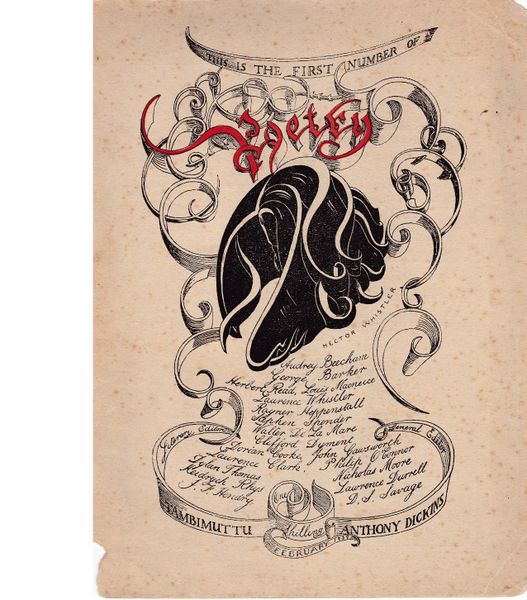 THIS IS THE FIRST NUMBER OF
Poetry
HECTOR WHISTLER
Audrey Beecham
George Barker
Herbert Read, Louis Macneice
Laurence Whistler
Rayner Heppenstall
Stephen Spender
Walter De La Mare
Clifford Dyment
Dorian Cooke, John Gawsworth
Laurence Clark, Philip O'Connor
Dylan Thomas Nicholas Moore
Keidrych Rhys Lawrence Durrell
J. F. Hendry D. S. Savage
General Editor
TAMBIMUTTU
One
Shilling
FEBRUARY
ANTHONY DICKINS